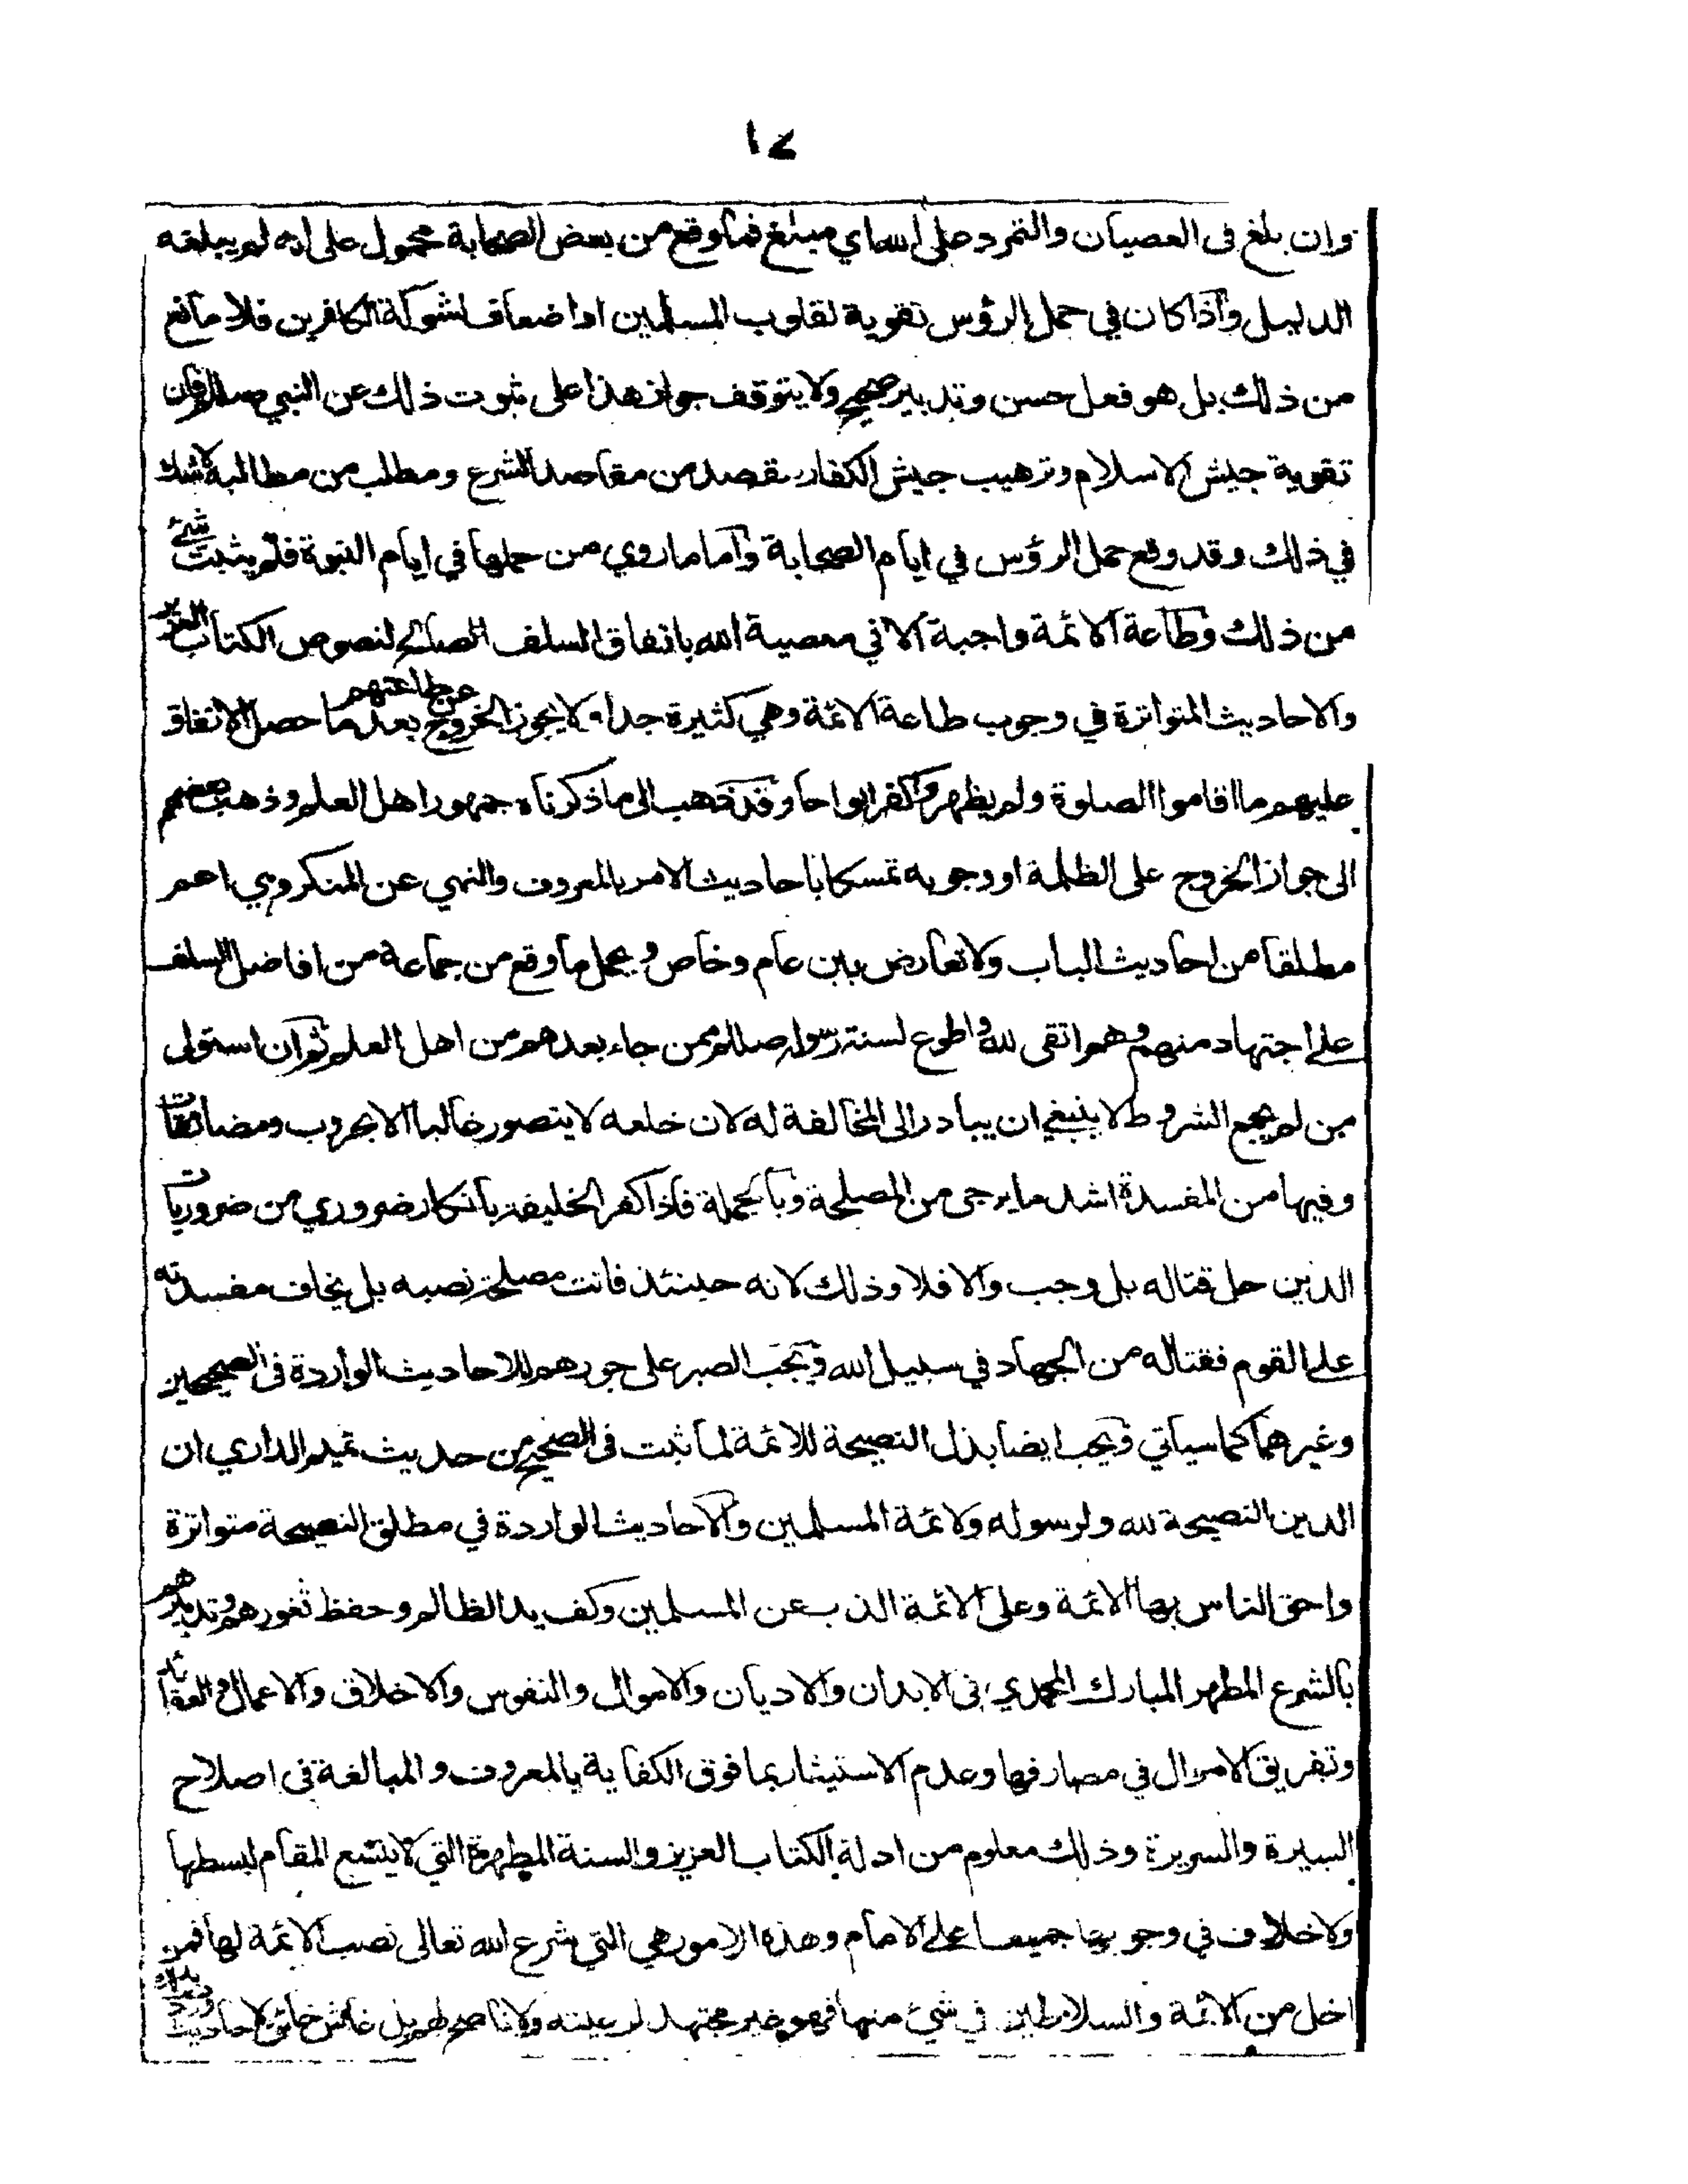 ١٤
وان بلغ فى العصيان والتمرد على الله اي مبلغ فما وقع من بعض الصحابة محمول على انه لم يبلغه
الدليل واذا كان في حمل الرؤس تقوية لقلوب المسلمين او اضعاف لشوكة الكافرين فلا مانع
من ذلك بل هو فعل حسن وتدبير صحيح ولا يتوقف جواز هذا على ثبوت ذلك عن النبي صللم فان
تقوية جيش الاسلام وترهيب جيش الكفار مقصد من مقاصد الشرع ومطلب من مطالبه لا شك
في ذلك وقد وقع حمل الرؤس في ايام الصحابة واما ما روي من حملها في ايام النبوة فلم يثبت شئ
من ذلك وطاعة الائمة واجبة الا في معصية الله باتفاق السلف الصالح لنصوص الكتاب العزيز
والاحاديث المتواترة في وجوب طاعة الائمة وهي كثيرة جدا ولا يجوز الخروج عن طاعتهم بعد ما حصل الاتفاق
عليهم ما اقاموا الصلوة ولم يظهروا كفرا بواحا وقد ذهب الى ما ذكرناه جمهور اهل العلم وذهب بعضهم
الى جواز الخروج على الظلمة او وجوبه تمسكا باحاديث الامر بالمعروف والنهي عن المنكر وهي اعم
مطلقا من احاديث الباب ولا تعارض بين عام وخاص ويحمل ما وقع من جماعة من افاضل السلف
على اجتهاد منهم وهم اتقى لله واطوع لسنة رسوله صللم ممن جاء بعدهم من اهل العلم ثم ان استولى
من لم يجمع الشروط لا ينبغي ان يبادر الى المخالفة له لان خلعه لا يتصور غالبا الا بحروب ومضائقات
وفيها من المفسدة اشد ما يرجى من المصلحة وبالجملة فاذا كفر الخليفة بانكار ضروري من ضروريات
الدين حل قتاله بل وجب والا فلا وذلك لانه حينئذ فاتت مصلحة نصبه بل يخاف مفسدته
على القوم فقتاله من الجهاد في سبيل الله ويجب الصبر على جورهم للاحاديث الواردة فى الصحيحين
وغيرهما كما سيأتي ويجب ايضا بذل النصيحة للائمة لما ثبت فى الصحيح من حديث تميم الداري ان
الدين النصيحة لله ولرسوله ولائمة المسلمين والاحاديث الواردة في مطلق النصيحة متواترة
واحق الناس بها الائمة وعلى الائمة الذب عن المسلمين وكف يد الظالم وحفظ ثغورهم وتدبيرهم
بالشرع المطهر المبارك المحمدي فى الابدان والاديان والاموال والنفوس والاخلاق والاعمال والعقائد
وتفريق الاموال في مصارفها وعدم الاستيثار بما فوق الكفاية بالمعروف والمبالغة فى اصلاح
السيرة والسريرة وذلك معلوم من ادلة الكتاب العزيز والسنة المطهرة التي لا يتسع المقام لبسطها
ولا خلاف في وجوبها جميعا على الامام وهذه الامور هي التي شرع الله تعالى نصب الائمة لها فمن
اخل من الائمة والسلاطين في شيء منها فهو غير مجتهد لرعيته ولا ناصح لهم بل غاش خائن